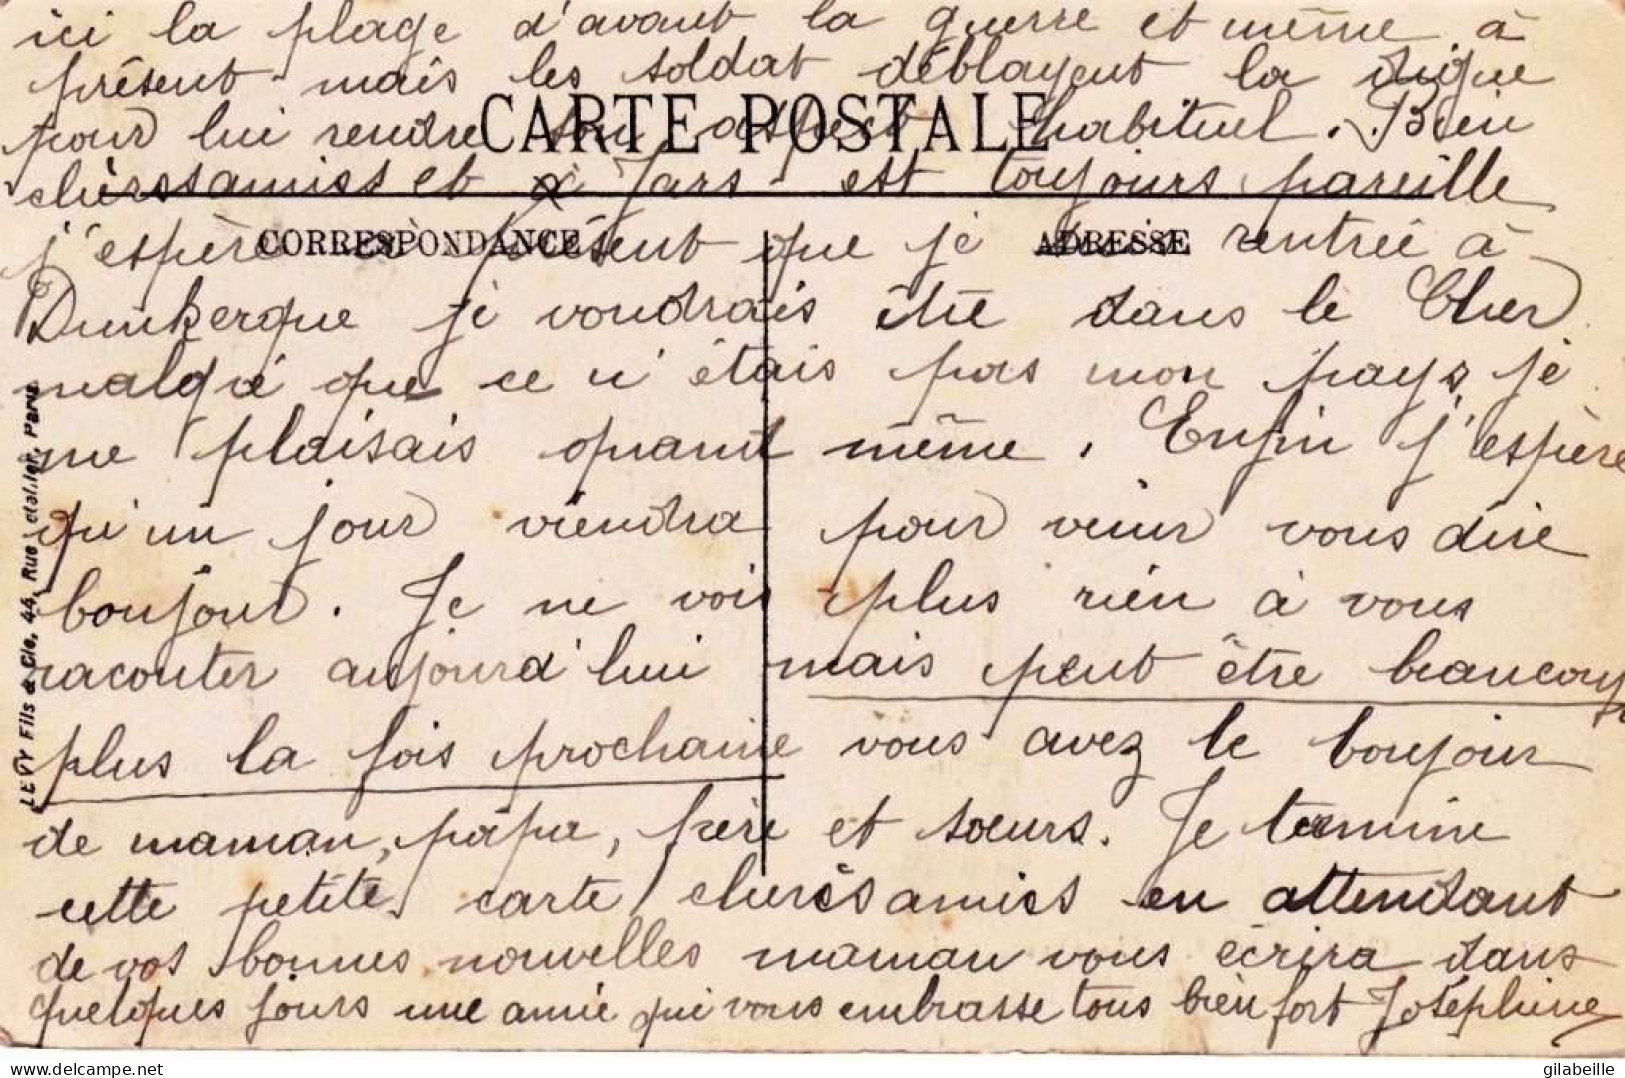 ici la plage d'avant la guerre et même à
présent mais les soldat déblayent la digue
pour lui rendre son aspect habituel. Bien
chèrs amies et à Jars est toujours pareille
j'espère à présent que je suis rentrée à
Dunkerque je voudrais être dans le Cher
malgré que ce n'étais pas mon pays je
me plaisais quand même. Enfin j'espère
qu'un jour viendra pour venir vous dire
bonjour. Je ne vois plus rien à vous
raconter aujourd'hui mais peut être beaucoup
plus la fois prochaine vous avez le bonjour
de maman, papa, frère et sœurs. Je termine
cette petite carte chères amies en attendant
de vos bonnes nouvelles maman vous écrira dans
quelques jours une amie qui vous embrasse tous bien fort Joséphine
CARTE POSTALE
CORRESPONDANCE
ADRESSE
LEVY Fils & Cie, 44, Rue Letellier, Paris
delcampe.net
gilabeille